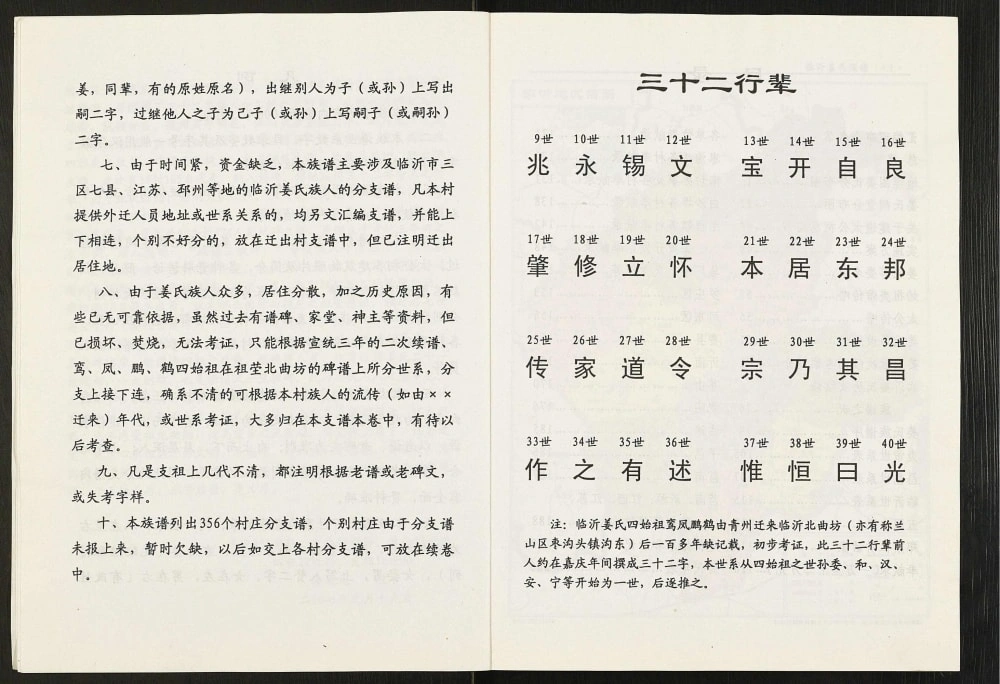 姜，同辈，有的原姓原名），出继别人为子（或孙）上写出
嗣二字，过继他人之子为己子（或孙）上写嗣子（或嗣孙）
二字。
七、由于时间紧，资金缺乏，本族谱主要涉及临沂市三
区七县、江苏、邳州等地的临沂姜氏族人的分支谱，凡本村
提供外迁人员地址或世系关系的，均另文汇编支谱，并能上
下相连，个别不好分的，放在迁出村支谱中，但已注明迁出
居住地。
八、由于姜氏族人众多，居住分散，加之历史原因，有
些已无可靠依据，虽然过去有谱碑、家堂、神主等资料，但
已损坏、焚烧，无法考证，只能根据宣统三年的二次续谱、
鸾、凤、鹏、鹤四始祖在祖茔北曲坊的碑谱上所分世系，分
支上接下连，确系不清的可根据本村族人的流传（如由××
迁来）年代，或世系考证，大多归在本支谱本卷中，有待以
后考查。
九、凡是支祖上几代不清，都注明根据老谱或老碑文，
或失考字样。
十、本族谱列出356个村庄分支谱，个别村庄由于分支谱
未报上来，暂时欠缺，以后如交上各村分支谱，可放在续卷
中。
三十二行辈
9世 10世 11世 12世 13世 14世 15世 16世
兆 永 锡 文 宝 开 自 良
17世 18世 19世 20世 21世 22世 23世 24世
肇 修 立 怀 本 居 东 邦
25世 26世 27世 28世 29世 30世 31世 32世
传 家 道 令 宗 乃 其 昌
33世 34世 35世 36世 37世 38世 39世 40世
作 之 有 述 惟 恒 曰 光
注：临沂姜氏四始祖鸾凤鹏鹤由青州迁来临沂北曲坊（亦有称兰
山区枣沟头镇沟东）后一百多年缺记载，初步考证，此三十二行辈前
人约在嘉庆年间撰成三十二字，本世系从四始祖之世孙委、和、汉、
安、宁等开始为一世，后逐推之。